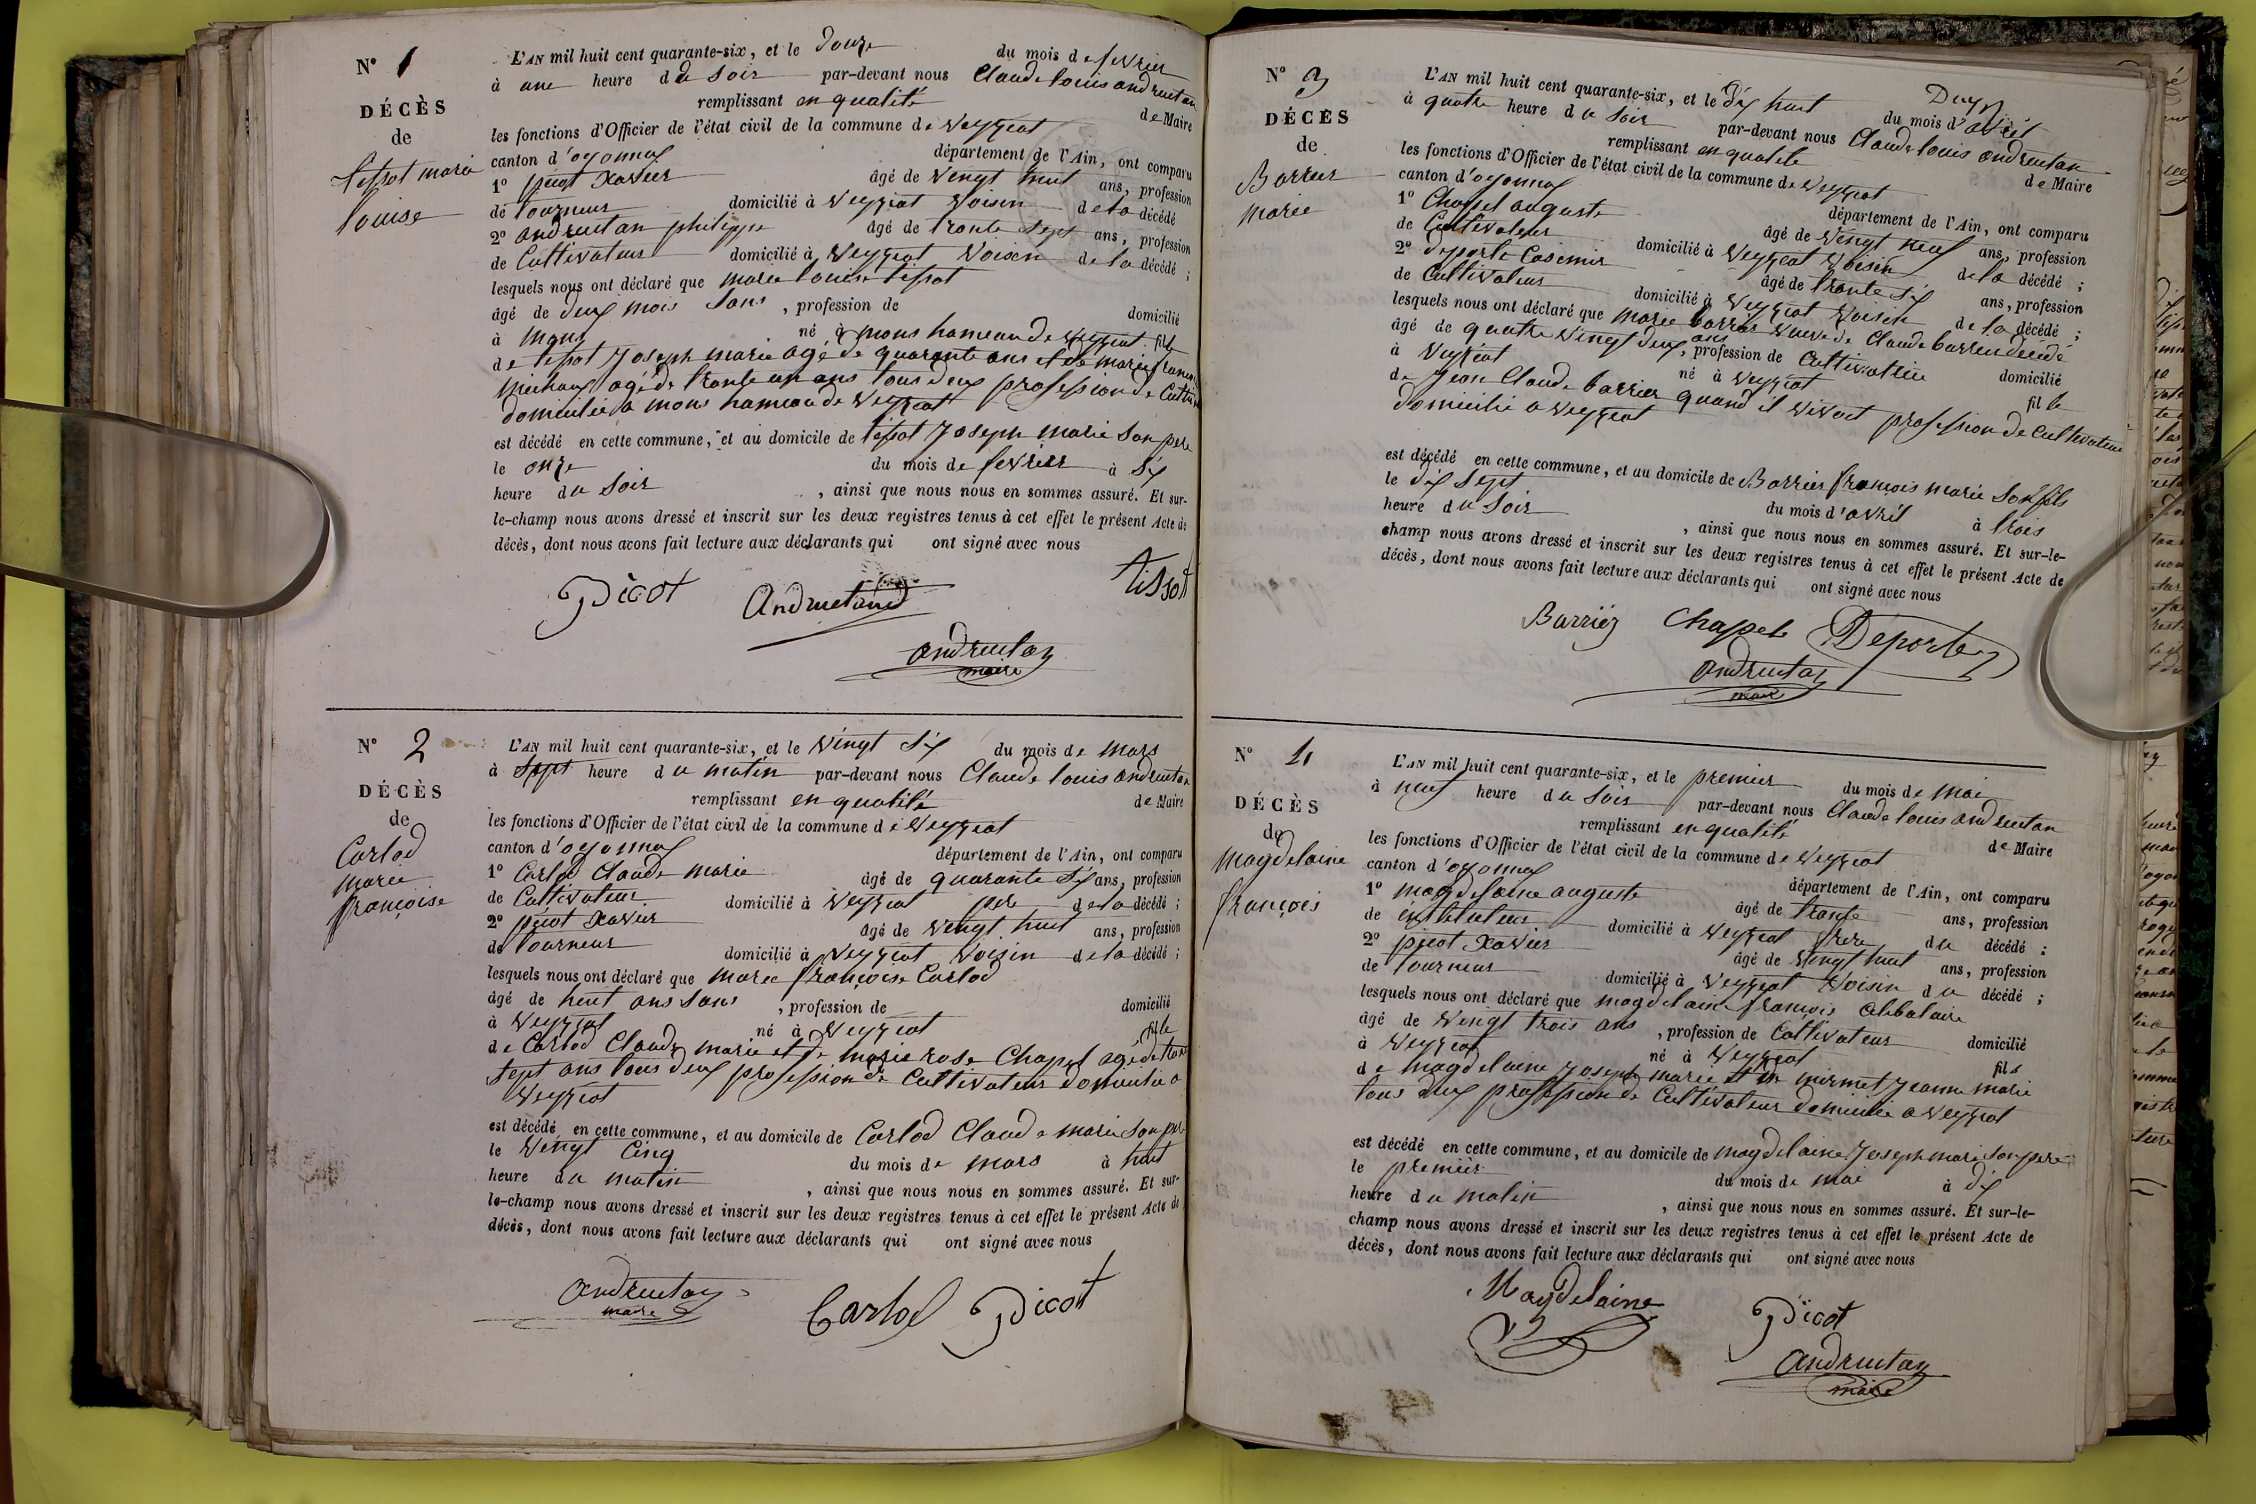 N° 1
DÉCÈS
de
tissot marie
louise
L'AN mil huit cent quarante-six, et le douze du mois de fevrier
à une heure du soir par-devant nous Claude louis andruetan
remplissant en qualité de Maire
les fonctions d'Officier de l'état civil de la commune de Veyziat
canton d'oyonnax département de l'Ain, ont comparu
1° picot Xavier âgé de vengt huit ans, profession
de tourneur domicilié à Veyziat Voisin de la décédé
2° andruetan philippe âgé de trente sept ans, profession
de Cultivateur domicilié à Veyziat Voisin de la décédé ;
lesquels nous ont déclaré que marie louise tissot
âgé de deux mois sans , profession de domicilié
à mons né à mons hameau de Veyziat fille
de tissot Joseph marie agé de quarante ans et de marie
michaux agé de trante un ans tous deux profession de
domicilié a mons hameau de Veyziat
est décédé en cette commune, et au domicile de tissot Joseph marie son pere
le onze du mois de fevrier à six
heure du soir , ainsi que nous nous en sommes assuré. Et sur-
le-champ nous avons dressé et inscrit sur les deux registres tenus à cet effet le présent Acte de
décès, dont nous avons fait lecture aux déclarants qui ont signé avec nous
Picot Andruetand tissot
andruetan
maire
N° 2
DÉCÈS
de
Carlod
marie
françoise
L'AN mil huit cent quarante-six, et le vingt six du mois de mars
à sept heure du matin par-devant nous Claude louis andruetan
remplissant en qualité de Maire
les fonctions d'Officier de l'état civil de la commune de Veyziat
canton d'oyonnax département de l'Ain, ont comparu
1° Carlod Claude marie âgé de quarante six ans, profession
de Cultivateur domicilié à Veyziat pere de la décédé ;
2° picot Xavier âgé de vengt huit ans, profession
de tourneur domicilié à Veyziat Voisin de la décédé ;
lesquels nous ont déclaré que marie françoise Carlod
âgé de huit ans sans , profession de domicilié
à Veyziat né à Veyziat fille
de Carlod Claude marie et de marie rose Chapel agé de
sept ans tous deux profession de Cultivateur domicilié a
Veyziat
est décédé en cette commune, et au domicile de Carlod Claude marie son pere
le vengt cinq du mois de mars à huit
heure du matin , ainsi que nous nous en sommes assuré. Et sur-
le-champ nous avons dressé et inscrit sur les deux registres tenus à cet effet le présent Acte de
décès, dont nous avons fait lecture aux déclarants qui ont signé avec nous
andruetan
maire
Carlod Picot
N° 3
DÉCÈS
de
Barrier
marie
L'AN mil huit cent quarante-six, et le dix huit du mois d'avril
à quatre heure du soir par-devant nous Claude louis andruetan
remplissant en qualité de Maire
les fonctions d'Officier de l'état civil de la commune de Veyziat
canton d'oyonnax département de l'Ain, ont comparu
1° Chapel auguste âgé de vengt neuf ans, profession
de Cultivateur domicilié à Veyziat Voisin de la décédé ;
2° deporte Casimir âgé de trante six ans, profession
de Cultivateur domicilié à Veyziat Voisin de la décédé ;
lesquels nous ont déclaré que marie barrier veuve de Claude barrier décédé
âgé de quatre vengt deux ans, profession de Cultivatrice domicilié
à Veyziat né à Veyziat fille
de Jean Claude barrier quand il vivait profession de cultivateur
domicilié a Veyziat
est décédé en cette commune, et au domicile de Barrier françois marie son fils
le dix sept du mois d'avril à trois
heure du soir , ainsi que nous nous en sommes assuré. Et sur-le-
champ nous avons dressé et inscrit sur les deux registres tenus à cet effet le présent Acte de
décès, dont nous avons fait lecture aux déclarants qui ont signé avec nous
Barriéz Chapel Déporte
andruetan
maire
N° 4
DÉCÈS
de
magdelaine
françois
L'AN mil huit cent quarante-six, et le premier du mois de mai
à neuf heure du soir par-devant nous Claude louis andruetan
remplissant en qualité de Maire
les fonctions d'Officier de l'état civil de la commune de Veyziat
canton d'oyonnax département de l'Ain, ont comparu
1° magdelaine auguste âgé de trante ans, profession
de instituteur domicilié à Veyziat frere du décédé ;
2° picot Xavier âgé de vengt huit ans, profession
de tourneur domicilié à Veyziat Voisin du décédé ;
lesquels nous ont déclaré que magdelaine françois Clibataire
âgé de vengt trois ans , profession de Cultivateur domicilié
à Veyziat né à Veyziat fils
de magdelaine Joseph marie et de mermet Jeanne marie
tous deux profession de Cultivateur domicilié a Veyziat
est décédé en cette commune, et au domicile de magdelaine Joseph marie son pere
le premier du mois de mai à dix
heure du matin , ainsi que nous nous en sommes assuré. Et sur-le-
champ nous avons dressé et inscrit sur les deux registres tenus à cet effet le présent Acte de
décès, dont nous avons fait lecture aux déclarants qui ont signé avec nous
Magdelaine Picot
andruetan
maire